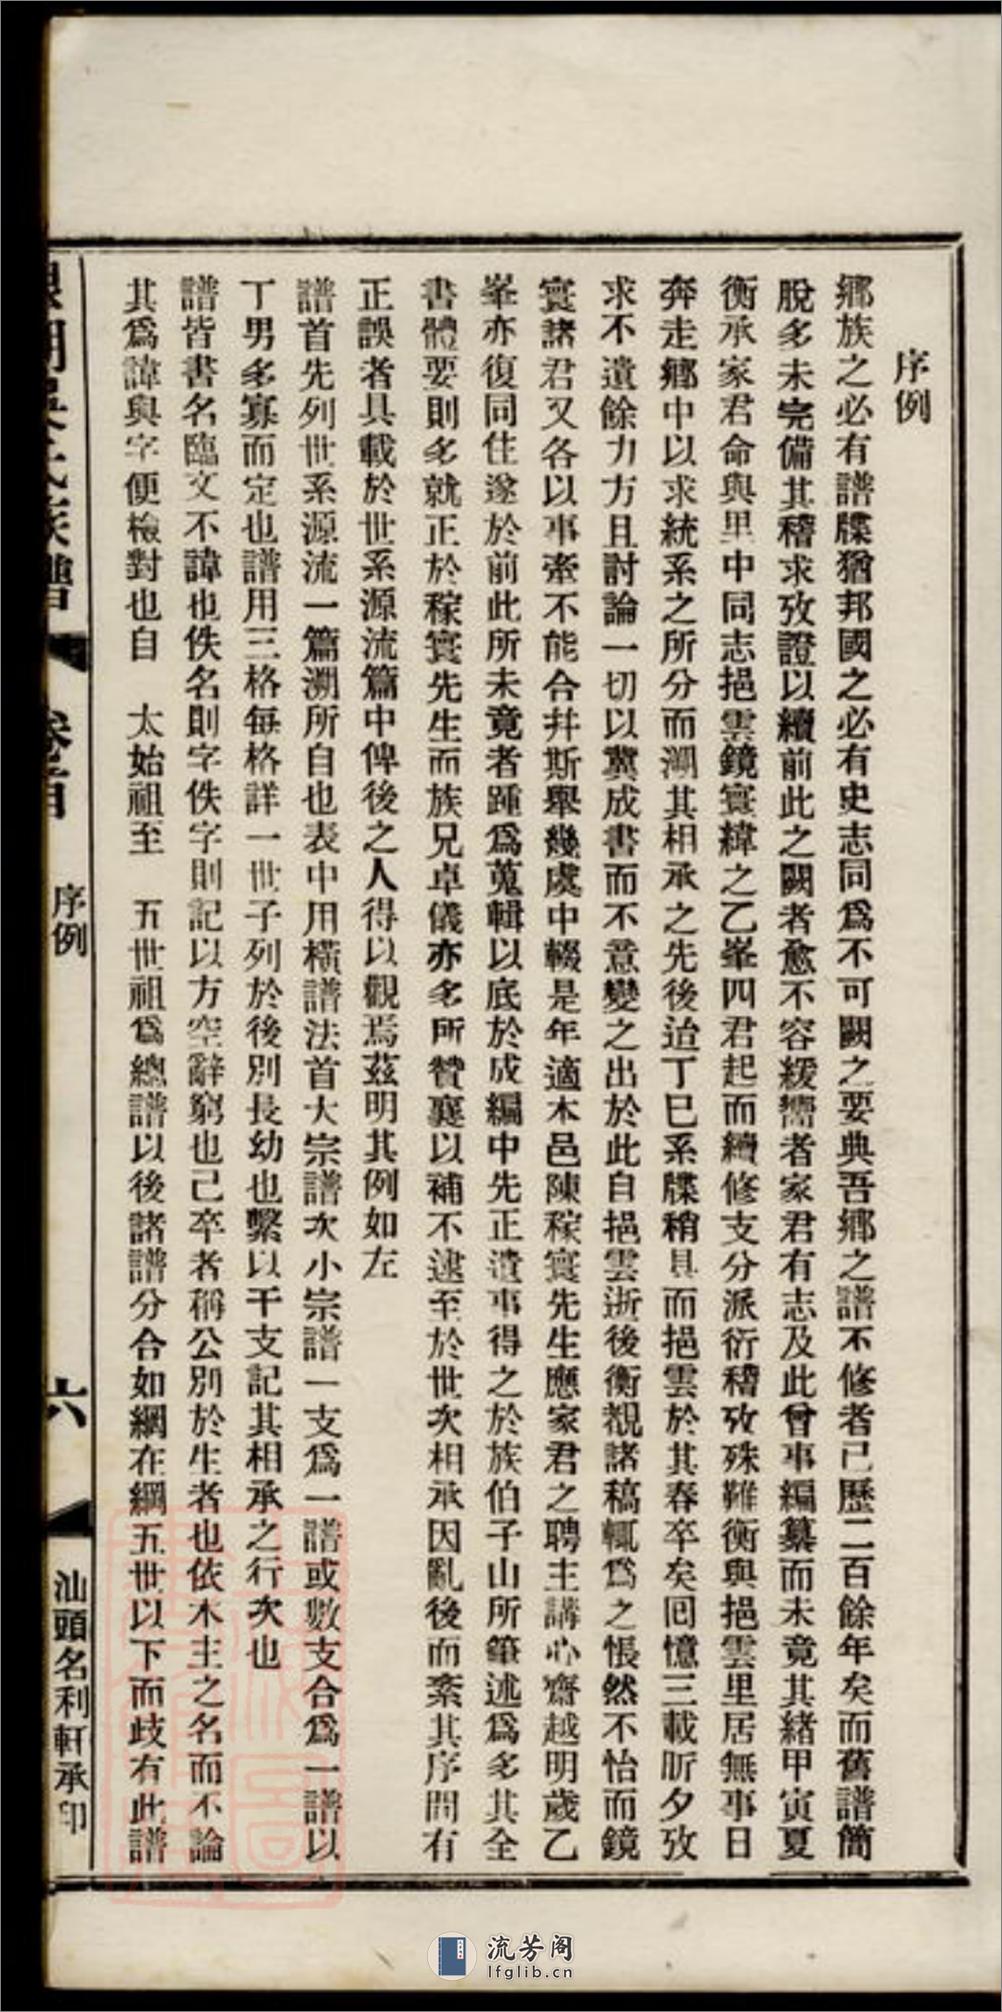 序例
鄉族之必有譜牒猶邦國之必有史志同爲不可闕之要典吾鄉之譜不修者已歷二百餘年矣而舊譜簡
脫多未完備其稽求攷證以續前此之闕者愈不容緩嚮者家君有志及此曾事編纂而未竟其緒甲寅夏
衡承家君命與里中同志挹雲鏡寰緯之乙峯四君起而續修支分派衍稽攷殊難衡與挹雲里居無事日
奔走鄉中以求統系之所分而溯其相承之先後迨丁巳系牒稍具而挹雲於其春卒矣囘憶三載昕夕攷
求不遺餘力方且討論一切以冀成書而不意變之出於此自挹雲逝後衡覩諸稿輒爲之悵然不怡而鏡
寰諸君又各以事牽不能合幷斯舉幾虞中輟是年適本邑陳稼寰先生應家君之聘主講心齋越明歲乙
峯亦復同住遂於前此所未竟者踵爲蒐輯以底於成編中先正遺事得之於族伯子山所筆述爲多其全
書體要則多就正於稼寰先生而族兄卓儀亦多所贊襄以補不逮至於世次相承因亂後而紊其序間有
正誤者具載於世系源流篇中俾後之人得以觀焉茲明其例如左
譜首先列世系源流一篇溯所自也表中用橫譜法首大宗譜次小宗譜一支爲一譜或數支合爲一譜以
丁男多寡而定也譜用三格每格詳一世子列於後別長幼也繫以干支記其相承之行次也
譜皆書名臨文不諱也佚名則字佚字則記以方空辭窮也已卒者稱公別於生者也依木主之名而不論
其爲諱與字便檢對也自 太始祖至 五世祖爲總譜以後諸譜分合如網在綱五世以下而歧有此譜
氏族譜 卷首 序例 六 汕頭名利軒承印
流芳阁
lfglib.cn